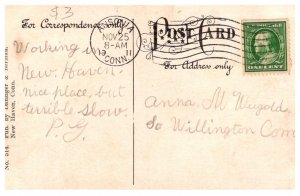 93
For Correspondence only
NOV 25
8-AM
11
CONN
POST CARD
For Address only
ONE CENT
Working in
New Haven.
nice place, but
terrible slow.
P.J.
Anna. M.
So Willington Conn
No. 214. Pub. by
New Haven, Conn.